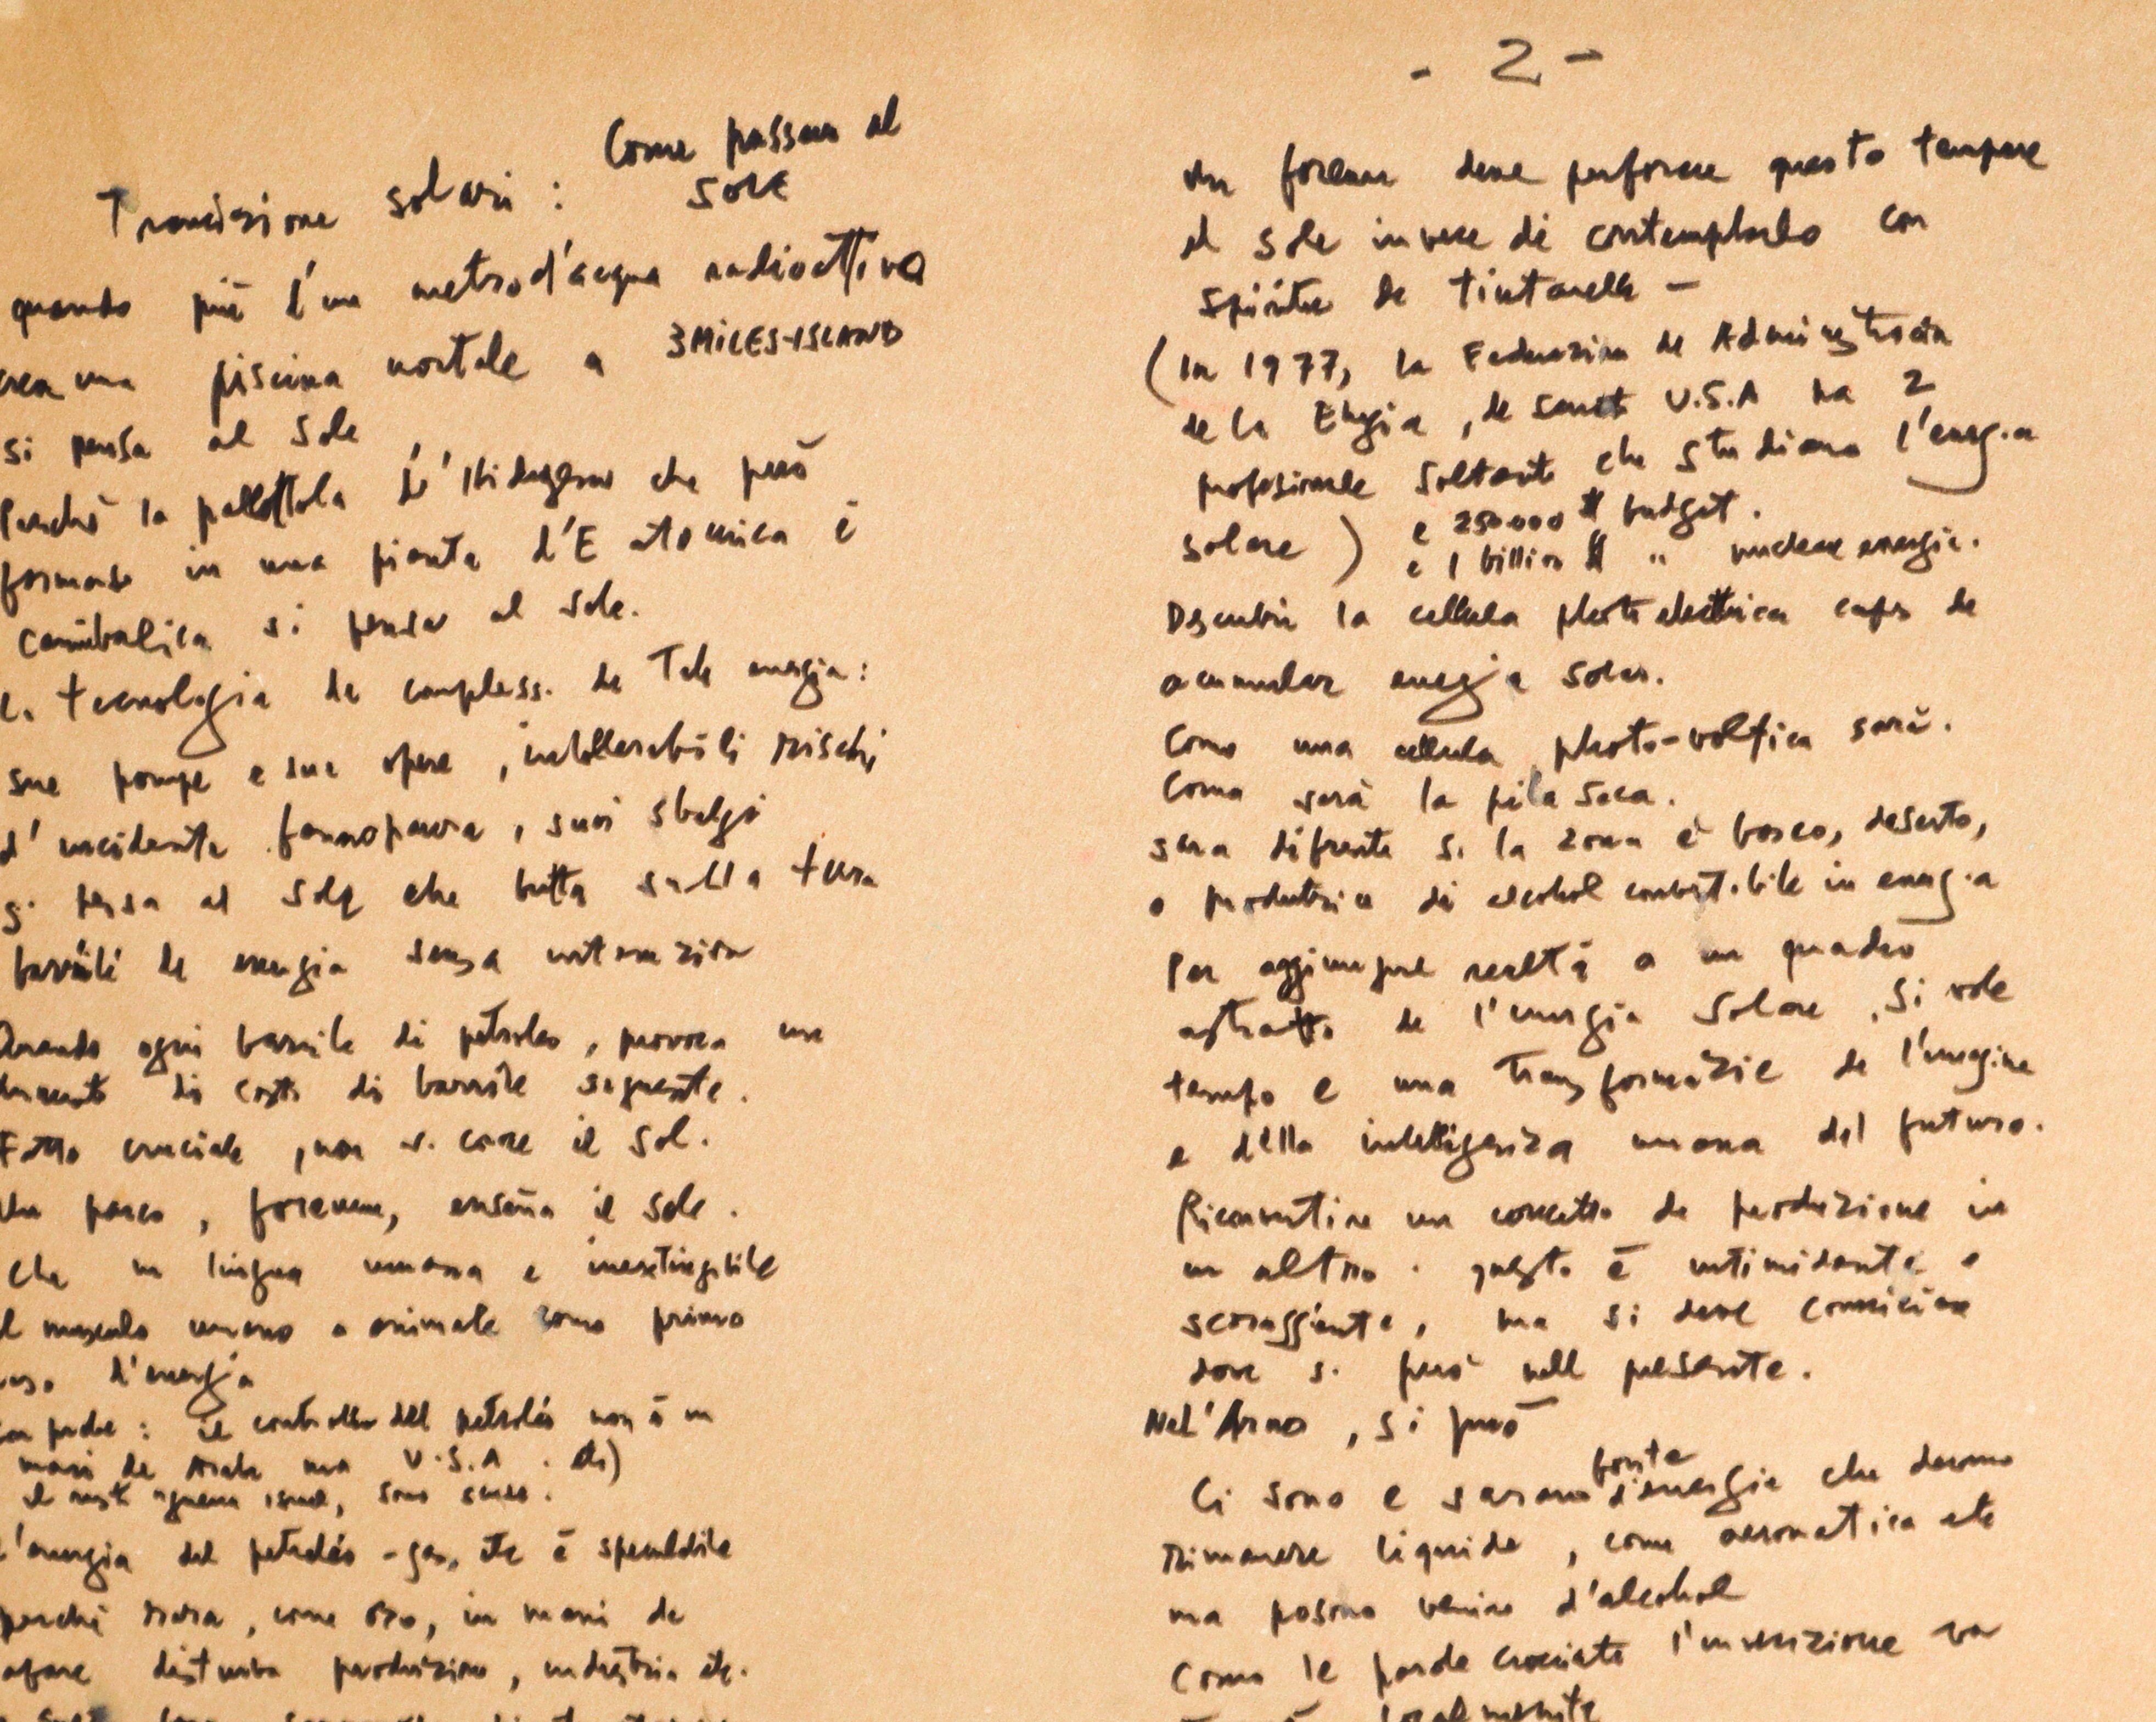 Trancizione solari : Come passar al
SOLE
quando più d'un metro d'acqua radioattiva
crea una piscina mortale a 3MILES-ISLAND
si pensa al Sole
Perchè la pallottola d'Hidrogeno che però
formarse in una pianta d'E atomica è
canibalica si pensa al Sole.
La tecnologia de compless. de Tale energia:
sue pompe e sue opere, intollerabili rischi
d'incidente fannopaura, suoi sbalgi
si pensa al Sole che butta sulla terra
barrili de energia senza
Quando ogni barrile di petroleo, provoca un
aumento di costi di barrile seguente.
Fatto cruciale, non si core il Sol.
Un parco, forever, enseña il Sole.
che in lingua umana e inextingibile
il musculo umano o animale como primo
uso d'energia
il controllo dell petroleo non è in
mani de Arabe ma U.S.A.
il resto
l'energia del petroleo - gas, etc è
perchè rara, come oro, in mani de
produzione, industria etc.
- 2 -
Un forever deve perforare questo tempore
al Sole invece di contemplarlo con
Spirito de tintarella -
(In 1977, la Federazion de Administracion
de la Energia, de U.S.A ha 2
profesionale soltanto che studiano l'energia
solare) e 250000 $ budget.
e 1 billion $ " nucleare energia.
Descubrir la cellula photoelectrica capaz de
acumular energia Solar.
Como una cellula photo-voltica sarà.
Como sarà la pila seca.
sera difrente si la zona è bosco, deserto,
o produtrice di alcohol combustibile in energia
Per aggiungere realtà a un quadro
astratto de l'energia Solare, Si vole
tempo e una Transformazie de l'imagine
e della intelligenza umana del futuro.
Riconvertire un concetto de produzione in
un altro. questo è intimidante e
scoraggiante, ma si deve cominciare
dove si può nell presente.
Nel'Arno, si può
Ci sono e saranno fonte d'energia che devono
rimanere liquide, come aeronatica etc
ma posono venire d'alcohol
Como le parole crociate l'invenzione va
localmente